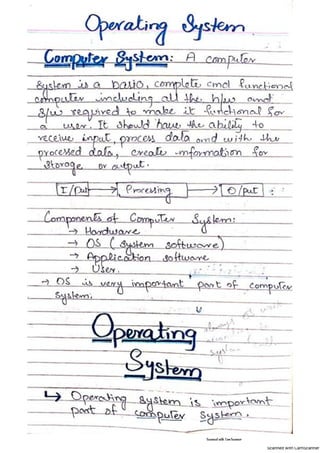 Operating System
Computer System: A computer
System is a basic, complete and functional
computer including all the h/w and
s/w required to make it functional for
a user. It should have the ability to
receive input, process data and with the
processed data, create information for
storage or output.
I/put → Processing → O/put
Components of Computer System:
→ Hardware
→ OS (System software)
→ Application software
→ User.
→ OS is very important part of computer
System.
Operating
System
↳ Operating System is important
part of computer System.
Scanned with CamScanner
Scanned with CamScanner